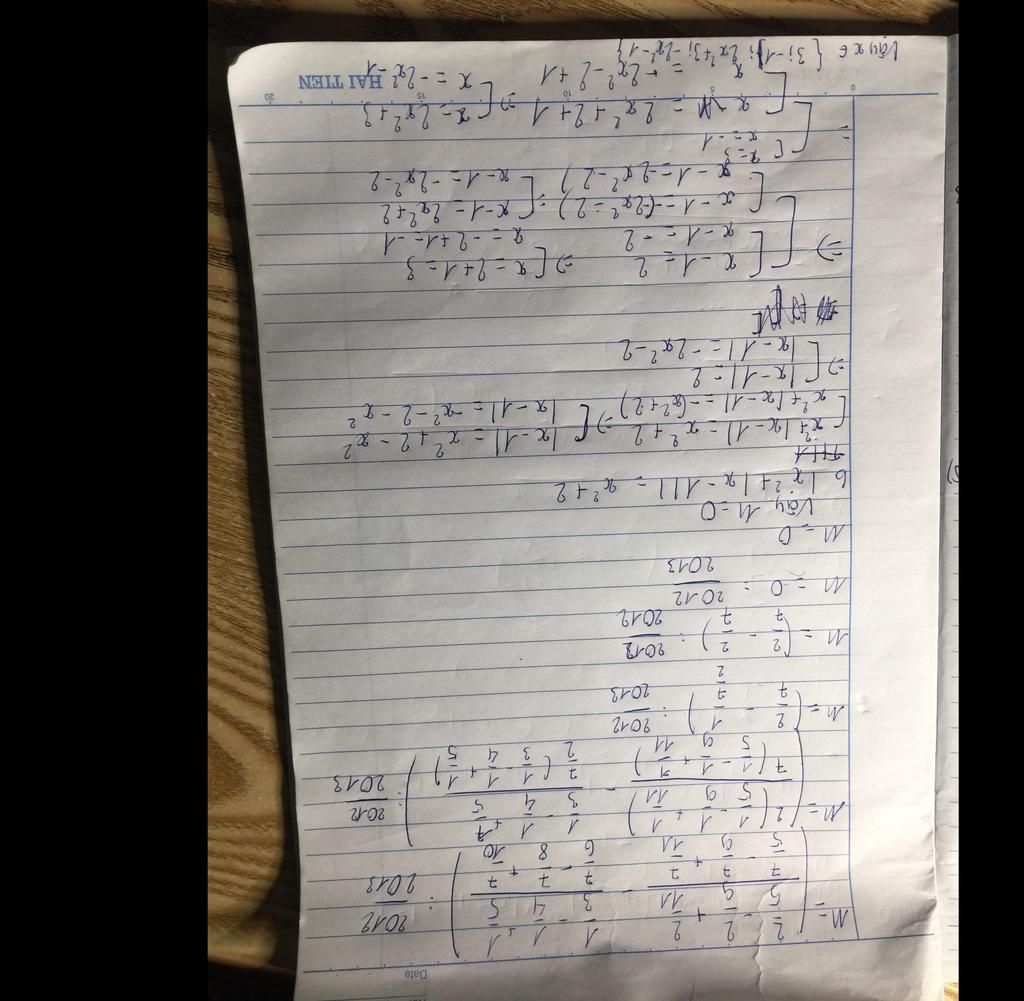 Date
M = ( (2/5 - 2/9 + 2/11)/(7/5 - 7/9 + 7/11) - (1/3 - 1/4 + 1/5)/(7/6 - 7/8 + 7/10) ) : 2012/2013
M = ( 2(1/5 - 1/9 + 1/11)/7(1/5 - 1/9 + 1/11) - (1/3 - 1/4 + 1/5)/(7/2 (1/3 - 1/4 + 1/5)) ) : 2012/2013
M = ( 2/7 - 1/(7/2) ) : 2012/2013
M = ( 2/7 - 2/7 ) : 2012/2012
M = 0 : 2012/2013
M = 0
Vậy M = 0
b |x² + |x - 1|| = x² + 2
[ x² + |x - 1| = x² + 2 => [ |x - 1| = x² + 2 - x²
x² + |x - 1| = -(x² + 2) |x - 1| = -x² - 2 - x²
=> [ |x - 1| = 2
|x - 1| = -2x² - 2
=> [ [ x - 1 = 2 => [ x = 2 + 1 = 3
x - 1 = -2 x = -2 + 1 = -1
[ x - 1 = -(-2x² - 2) = [ x - 1 = 2x² + 2
x - 1 = -2x² - 2) x - 1 = -2x² - 2
= [ [ x = 3
x = -1
[ x = 2x² + 2 + 1 => [ x = 2x² + 3
x = -2x² - 2 + 1 x = -2x² - 1
0 5 10 15 20
HAI TIEN
Vậy x ∈ { 3; -1; 2x² + 3; -2x² - 1 }